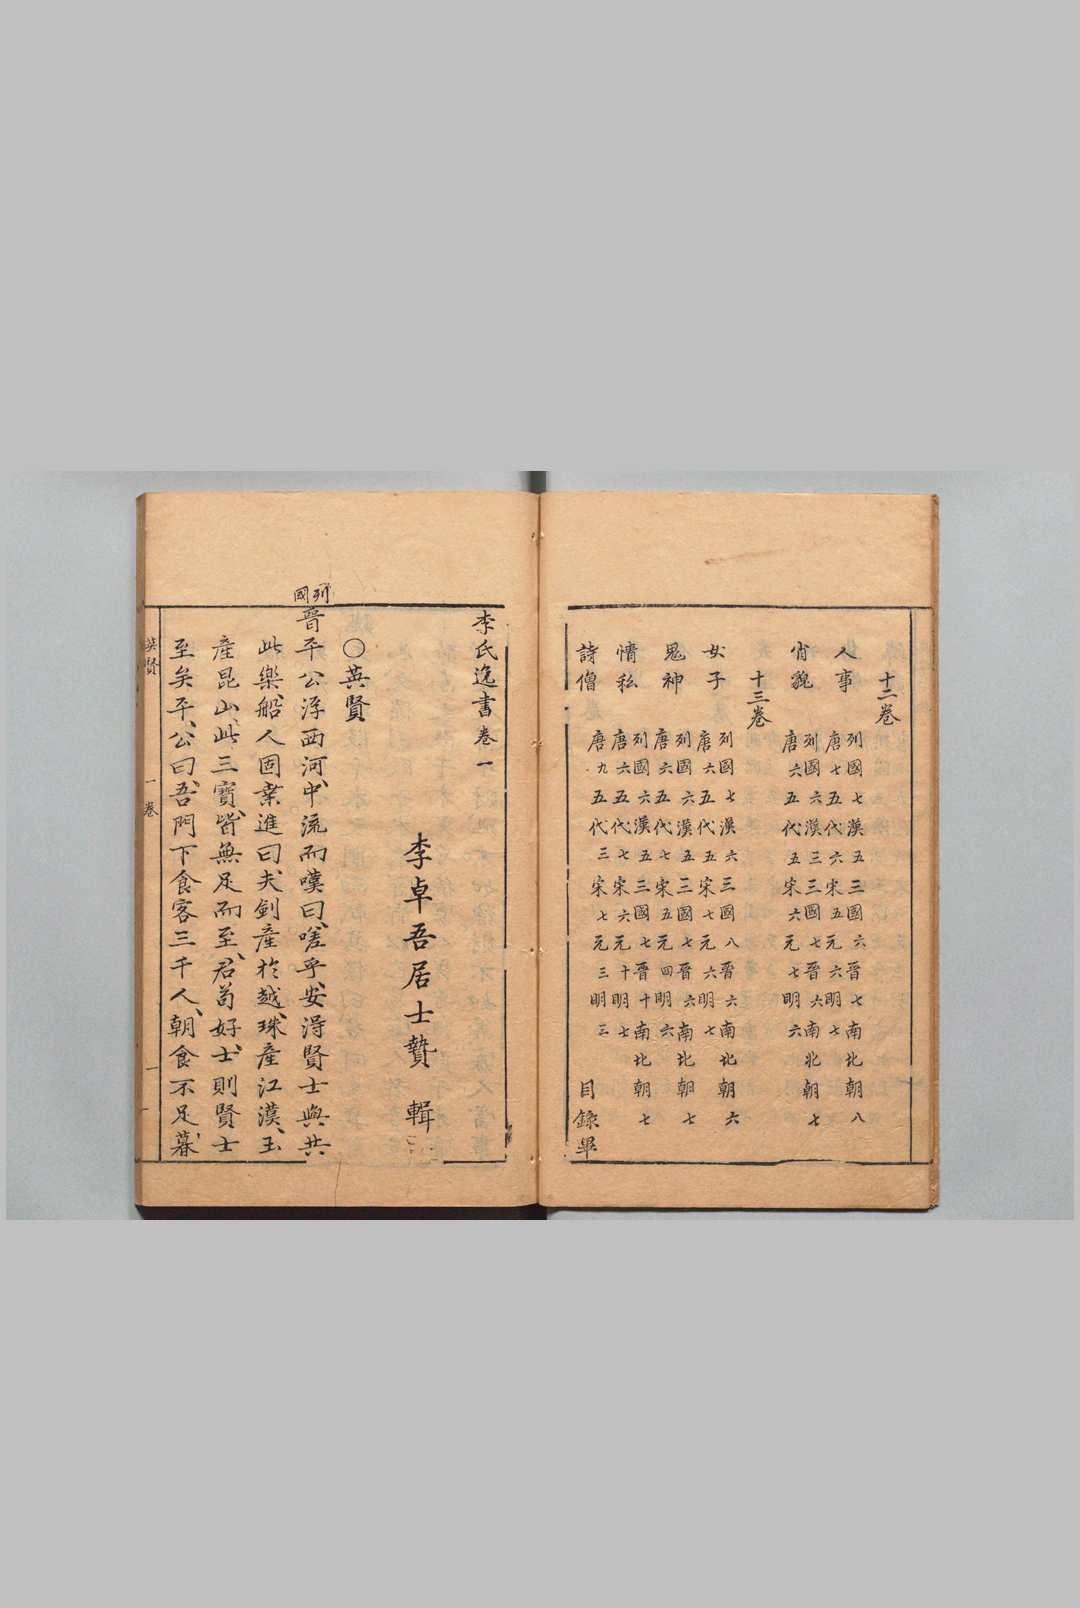 十二卷
人事
列國七漢五三國六晉七南北朝八
唐七五代六宋五元六明七
肖貌
列國六漢三三國七晉六南北朝七
唐六五代五宋六元七明六
十三卷
女子
列國七漢六三國八晉六南北朝六
唐六五代五宋七元六明七
鬼神
列國六漢五三國七晉六南北朝七
唐六五代七宋五元四明六
情私
列國六漢五三國七晉十南北朝七
唐六五代七宋六元十明七
詩僧
唐九五代三宋七元三明三
目錄畢
李氏逸書卷一
李卓吾居士贄 輯
○英賢
列國
晉平公浮西河、中流而嘆曰、嗟乎、安淂賢士與共
此樂、船人固桒進曰夫、劍産於越、珠産江漢、玉
產昆山、此、三寶、皆無足而至、君茍好士、則賢士
至矣平、公曰、吾、門下食客三千人、朝食不足、暮、
英賢
一卷
一